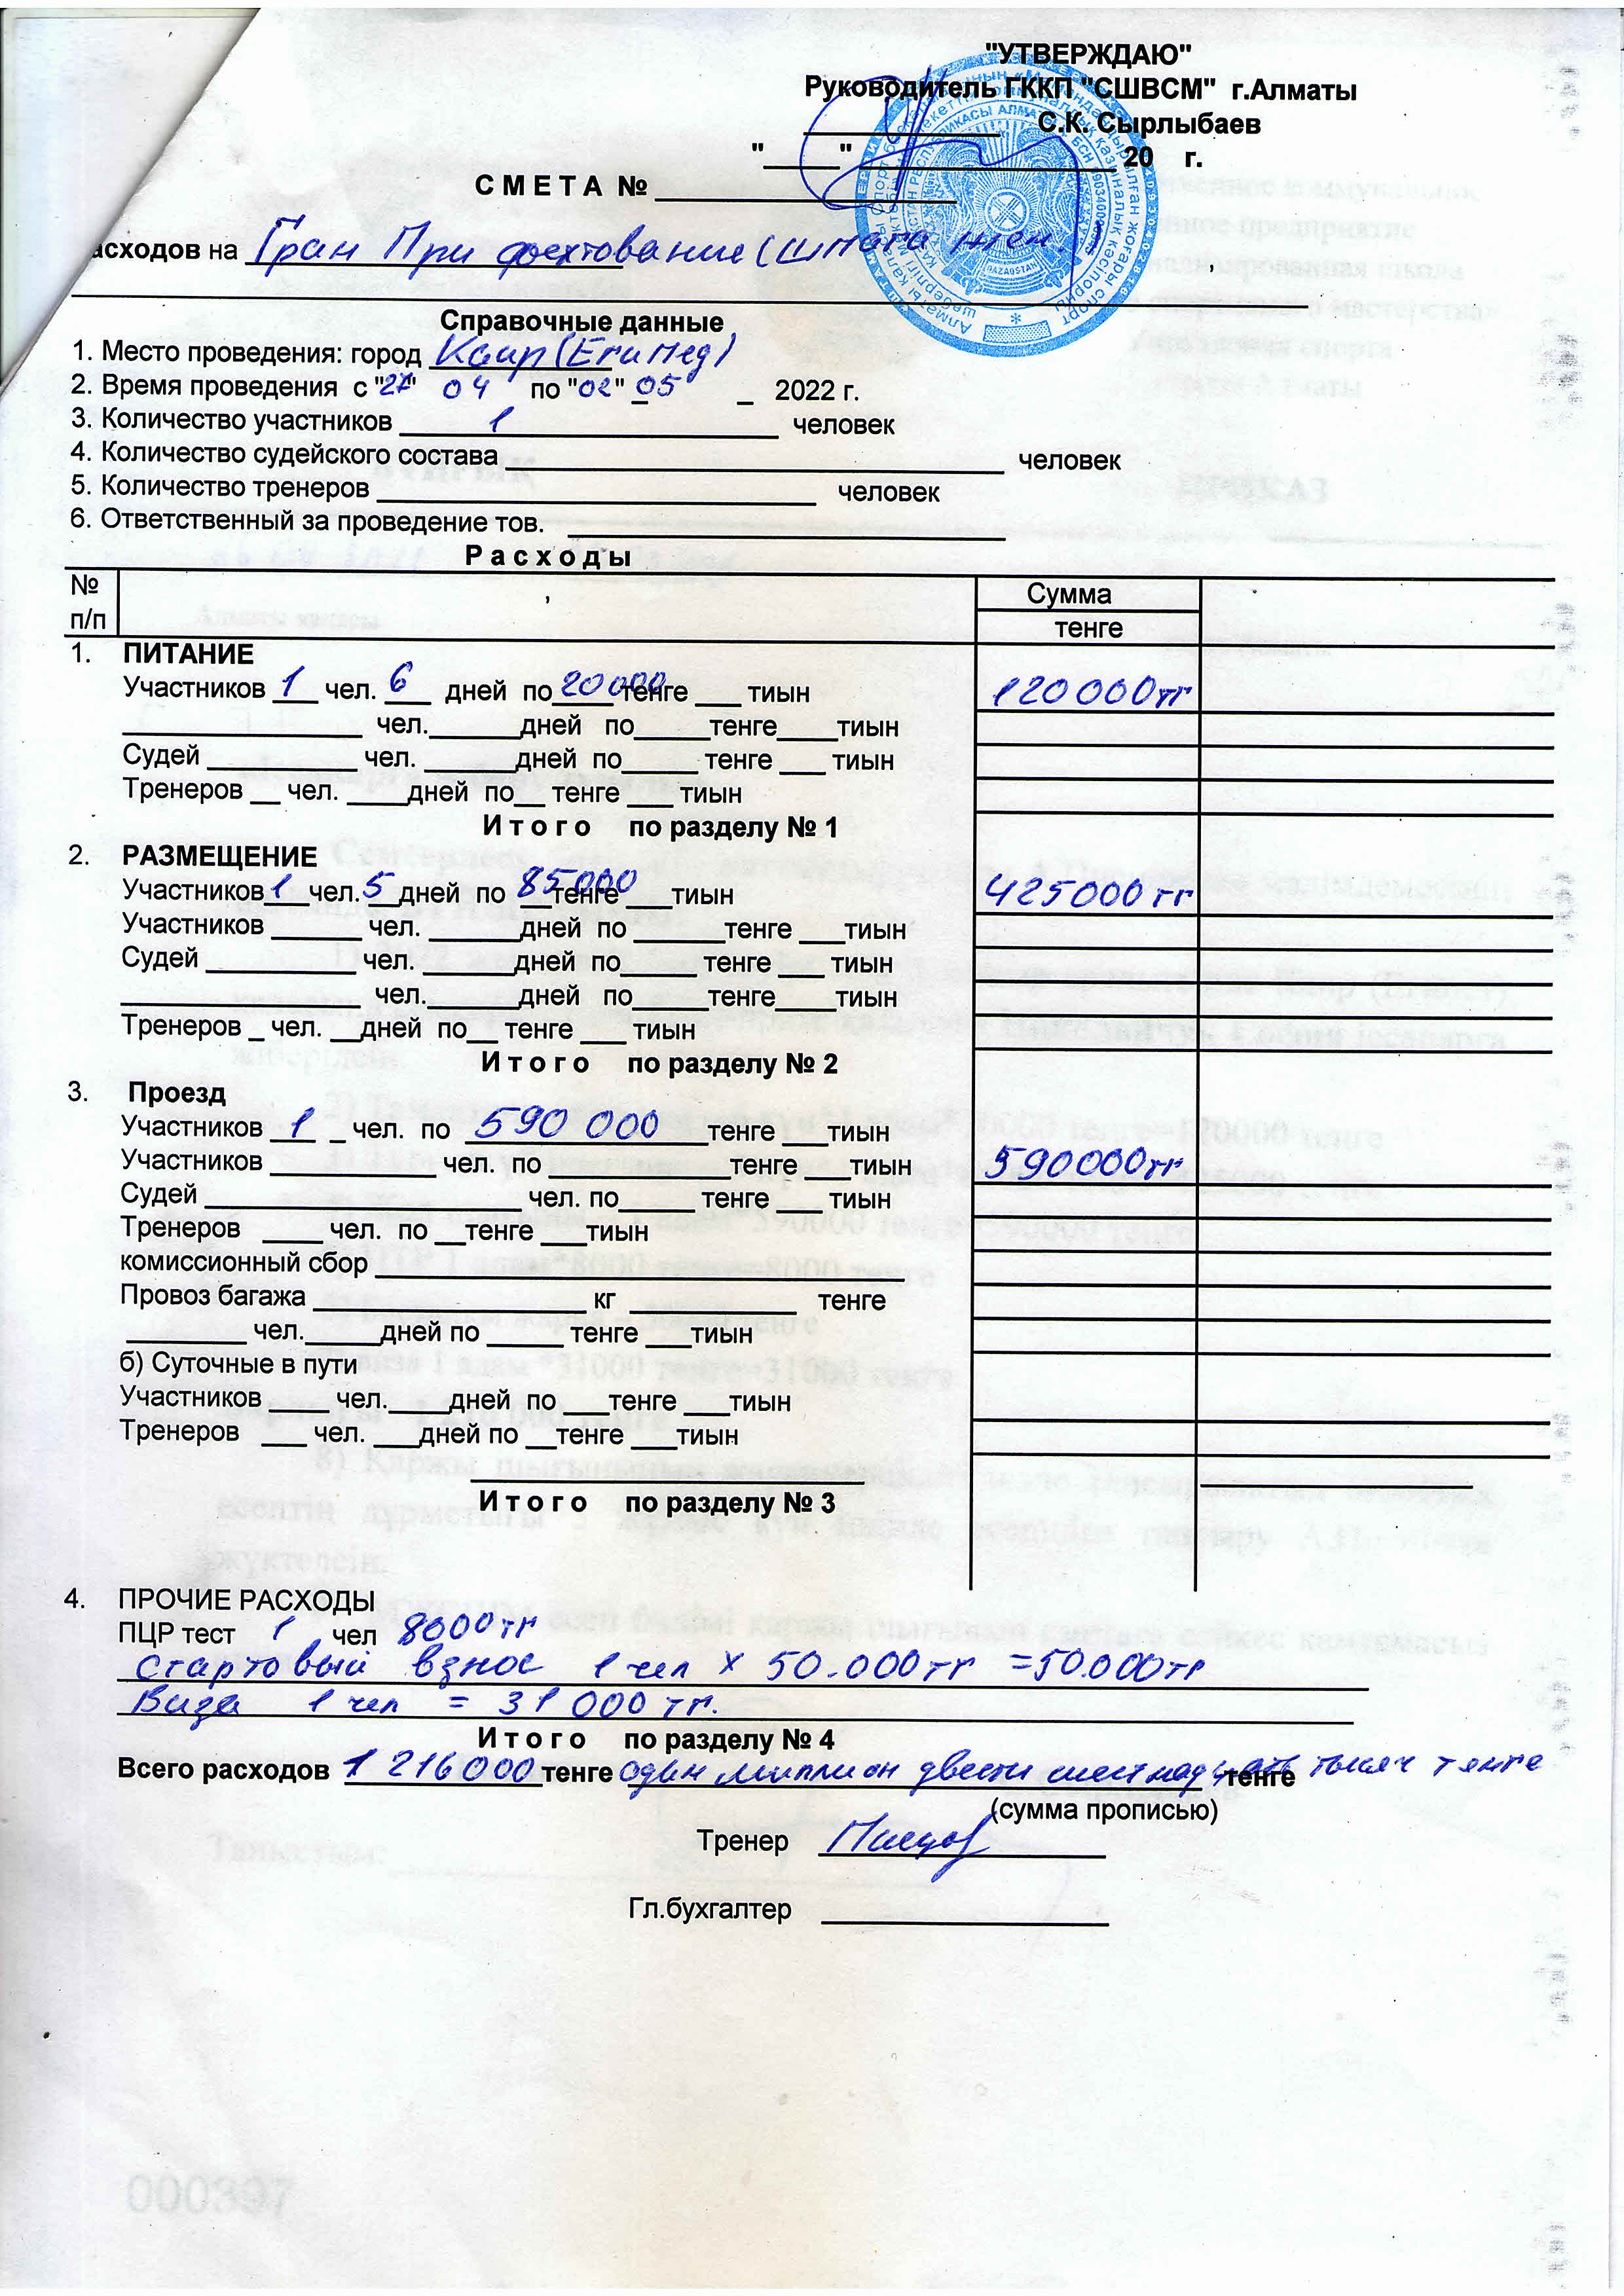 "УТВЕРЖДАЮ"
Руководитель ГККП "СШВСМ" г.Алматы
____________ С.К. Сырлыбаев
"_____" ________________ 20 г.
С М Е Т А № ____________________
асходов на Гран При фехтование (шпага жен.
Справочные данные
1. Место проведения: город Каир (Египед)
2. Время проведения с "27" 04 по "02" 05 _ 2022 г.
3. Количество участников 1 человек
4. Количество судейского состава ____________________ человек
5. Количество тренеров ____________________ человек
6. Ответственный за проведение тов. ____________________
Р а с х о д ы
№ п/п Сумма
тенге
1. ПИТАНИЕ
Участников 1 чел. 6 дней по 20000 тенге ___ тиын 120 000 тг
________________ чел.______дней по_____тенге____тиын
Судей __________ чел. ______дней по_____ тенге ___ тиын
Тренеров __ чел. ____дней по__ тенге ___ тиын
И т о г о по разделу № 1
2. РАЗМЕЩЕНИЕ
Участников 1 чел. 5 дней по 85000 тенге ___тиын 425000 тг
Участников ______ чел. ______дней по ______тенге ___тиын
Судей __________ чел. ______дней по_____ тенге ___ тиын
________________ чел.______дней по_____тенге____тиын
Тренеров _ чел. __дней по__ тенге ___ тиын
И т о г о по разделу № 2
3. Проезд
Участников 1 _ чел. по 590 000 тенге ___тиын
Участников ___________ чел. по ____________тенге ___тиын 590000тг
Судей _____________________ чел. по_____ тенге ___ тиын
Тренеров ____ чел. по __тенге ___тиын
комиссионный сбор ___________________________________
Провоз багажа __________________ кг ___________ тенге
________ чел._____дней по _____ тенге ___тиын
б) Суточные в пути
Участников ____ чел.____дней по ___тенге ___тиын
Тренеров ___ чел. ___дней по __тенге ___тиын
__________________________
И т о г о по разделу № 3
4. ПРОЧИЕ РАСХОДЫ
ПЦР тест 1 чел 8000 тг
Стартовый взнос 1 чел х 50.000 тг =50.000тг
Виза 1 чел = 31 000 тг.
И т о г о по разделу № 4
Всего расходов 1 216000 тенге один миллион двести шестнадцать тысяч тенге тенге
(сумма прописью)
Тренер ____________________
Гл.бухгалтер ____________________
000397